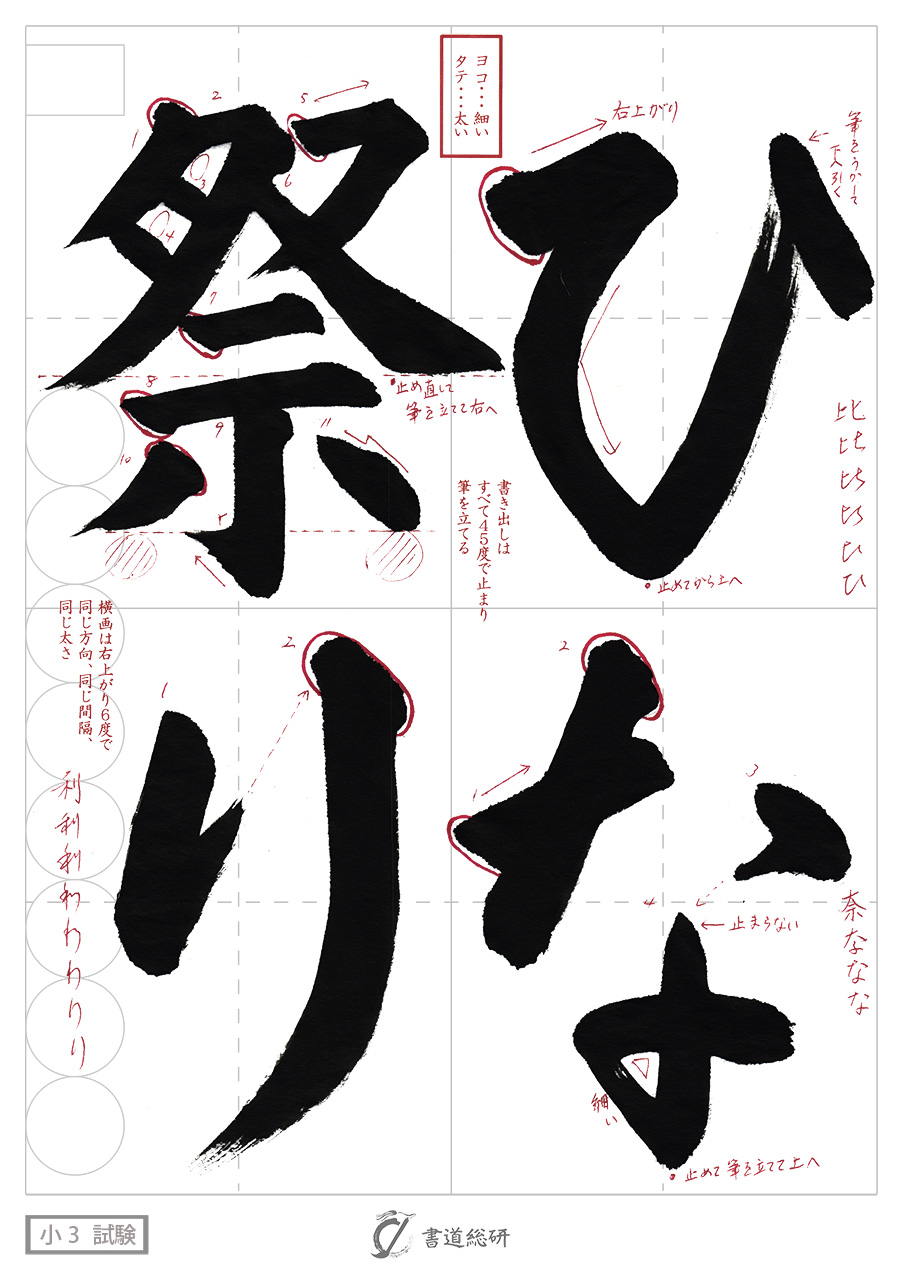 ひな
祭り
ヨコ・・・細い
タテ・・・太い
右上がり
筆をうかして
下へ引く
比
比
比
比
ひ
ひ
止めてから上へ
書き出しは
すべて45度で止まり
筆を立てる
1
2
3
4
止まらない
細い
止めて筆を立てて上へ
奈
な
な
な
1
2
3
4
5
6
7
8
9
10
11
止め直して
筆を立てて右へ
横画は右上がり6度で
同じ方向、同じ間隔、
同じ太さ
1
2
利
利
利
わ
わ
わ
り
り
小3 試験
書道総研